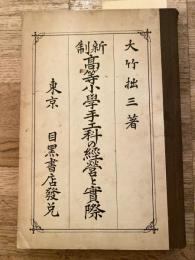 大竹拙三著
新制
高等小學手工科の經營と實際
東京 目黒書店發兌